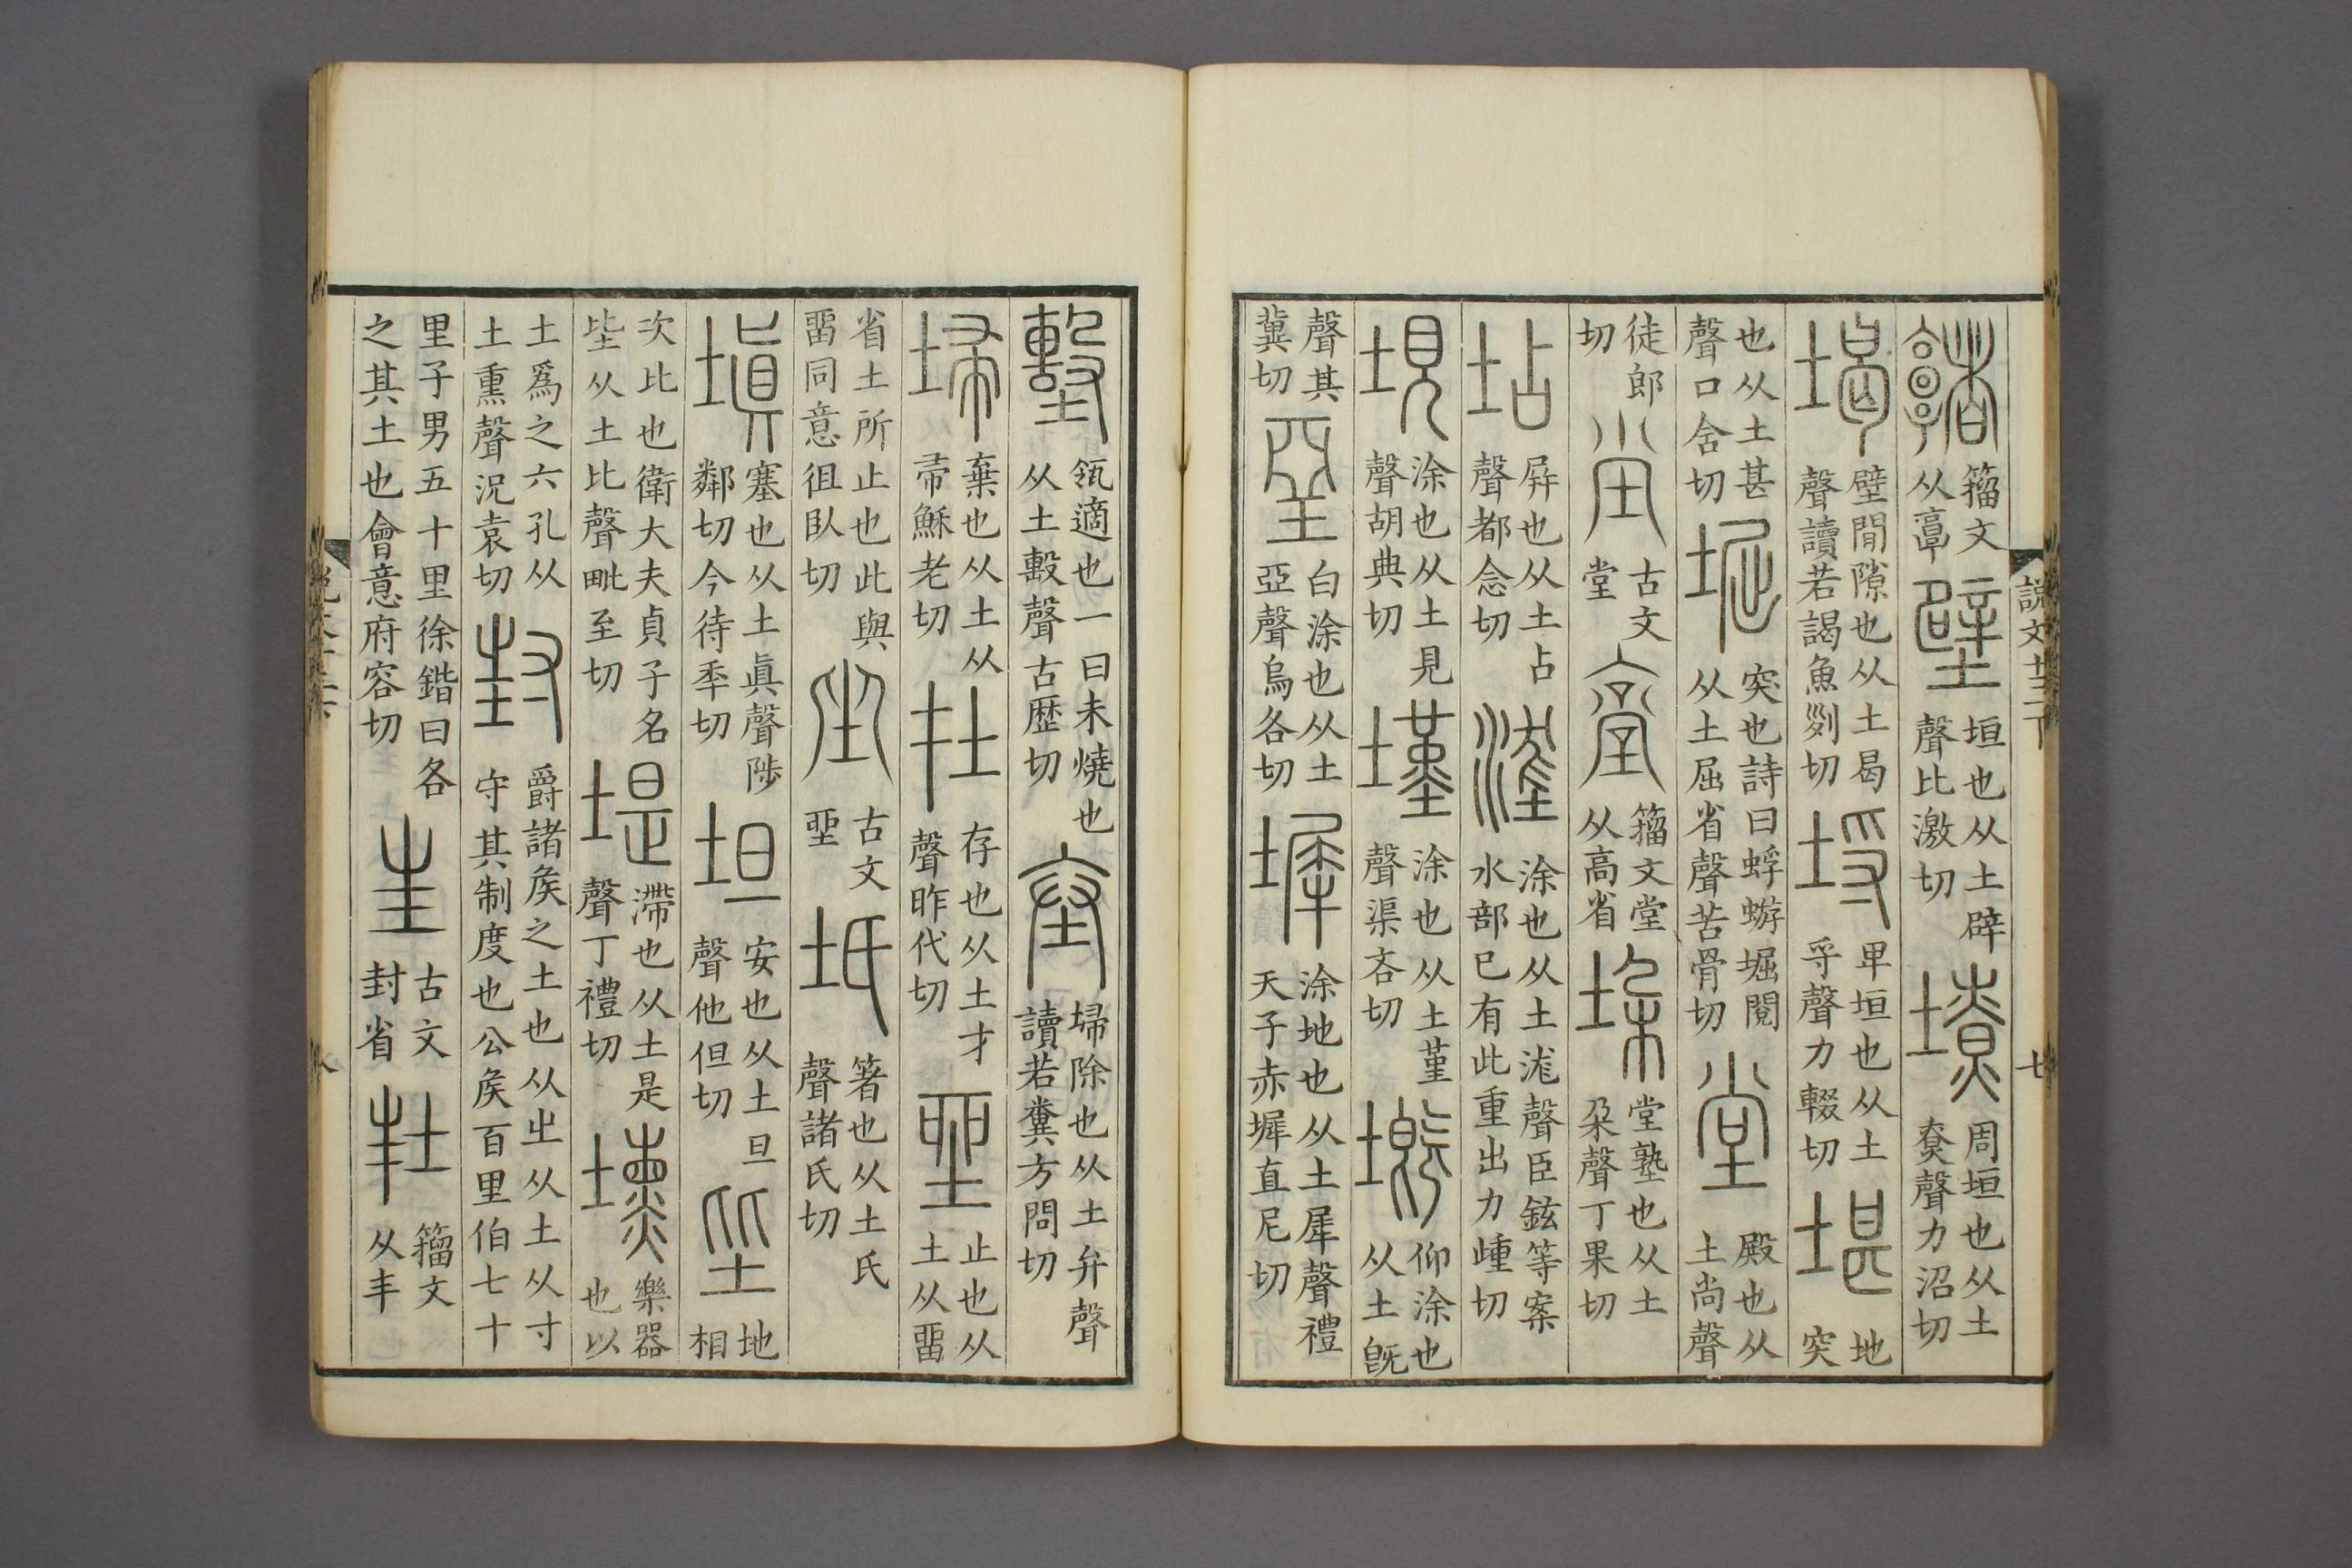 說文十三下 七
𩫳 籀文从𩫖 壁 垣也从土辟聲比激切 𡑭 周垣也从土尞聲力沼切
堨 壁閒隙也从土曷聲讀若謁魚列切 埒 卑垣也从土寽聲力輟切 堪 地突
也从土甚聲口含切 堀 突也詩曰蜉蝣堀閱从土屈省聲苦骨切 堂 殿也从土尚聲
徒郎切 坣 古文堂 籀文堂从高省 垛 堂塾也从土朵聲丁果切
坫 屏也从土占聲都念切 涂也从土浝聲臣鉉等案水部已有此重出力歱切
垷 涂也从土見聲胡典切 墐 涂也从土堇聲渠吝切 墍 仰涂也从土旣
聲其冀切 堊 白涂也从土亞聲烏各切 墀 涂地也从土犀聲禮天子赤墀直尼切
墼 瓴適也一曰未燒也从土毄聲古歷切 埽除也从土弁聲讀若糞方問切
埽 棄也从土从帚穌老切 在 存也从土才聲昨代切 𡋲 止也从土从畱
省土所止也此與畱同意徂臥切 坐 古文𡋲 坁 箸也从土氏聲諸氏切
塡 塞也从土眞聲陟鄰切今待秊切 坦 安也从土旦聲他但切 坒 地相
次比也衞大夫貞子名坒从土比聲毗至切 堤 滯也从土是聲丁禮切 壎 樂器也以
土爲之六孔从土熏聲況袁切 封 爵諸矦之土也从㞢从土从寸守其制度也公矦百里伯七十
里子男五十里徐鍇曰各之其土也會意府容切 𡉚 古文封省 𡊋 籀文从丰